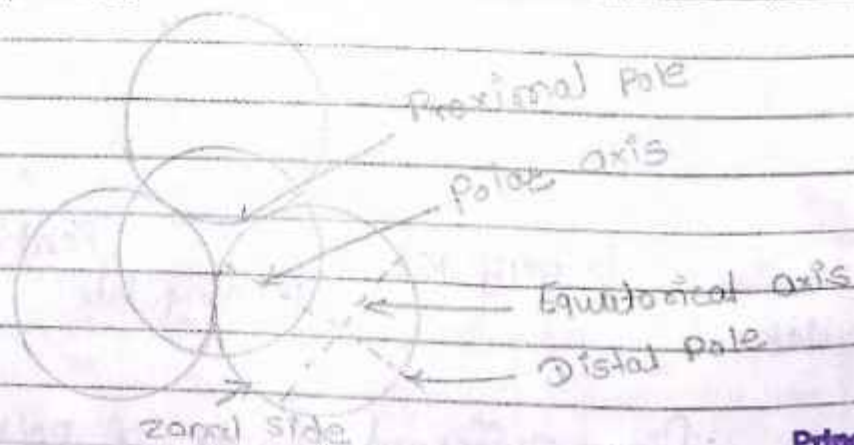 Proximal Pole
Polar axis
Equitorical axis
Distal Pole
zonal side
Prin